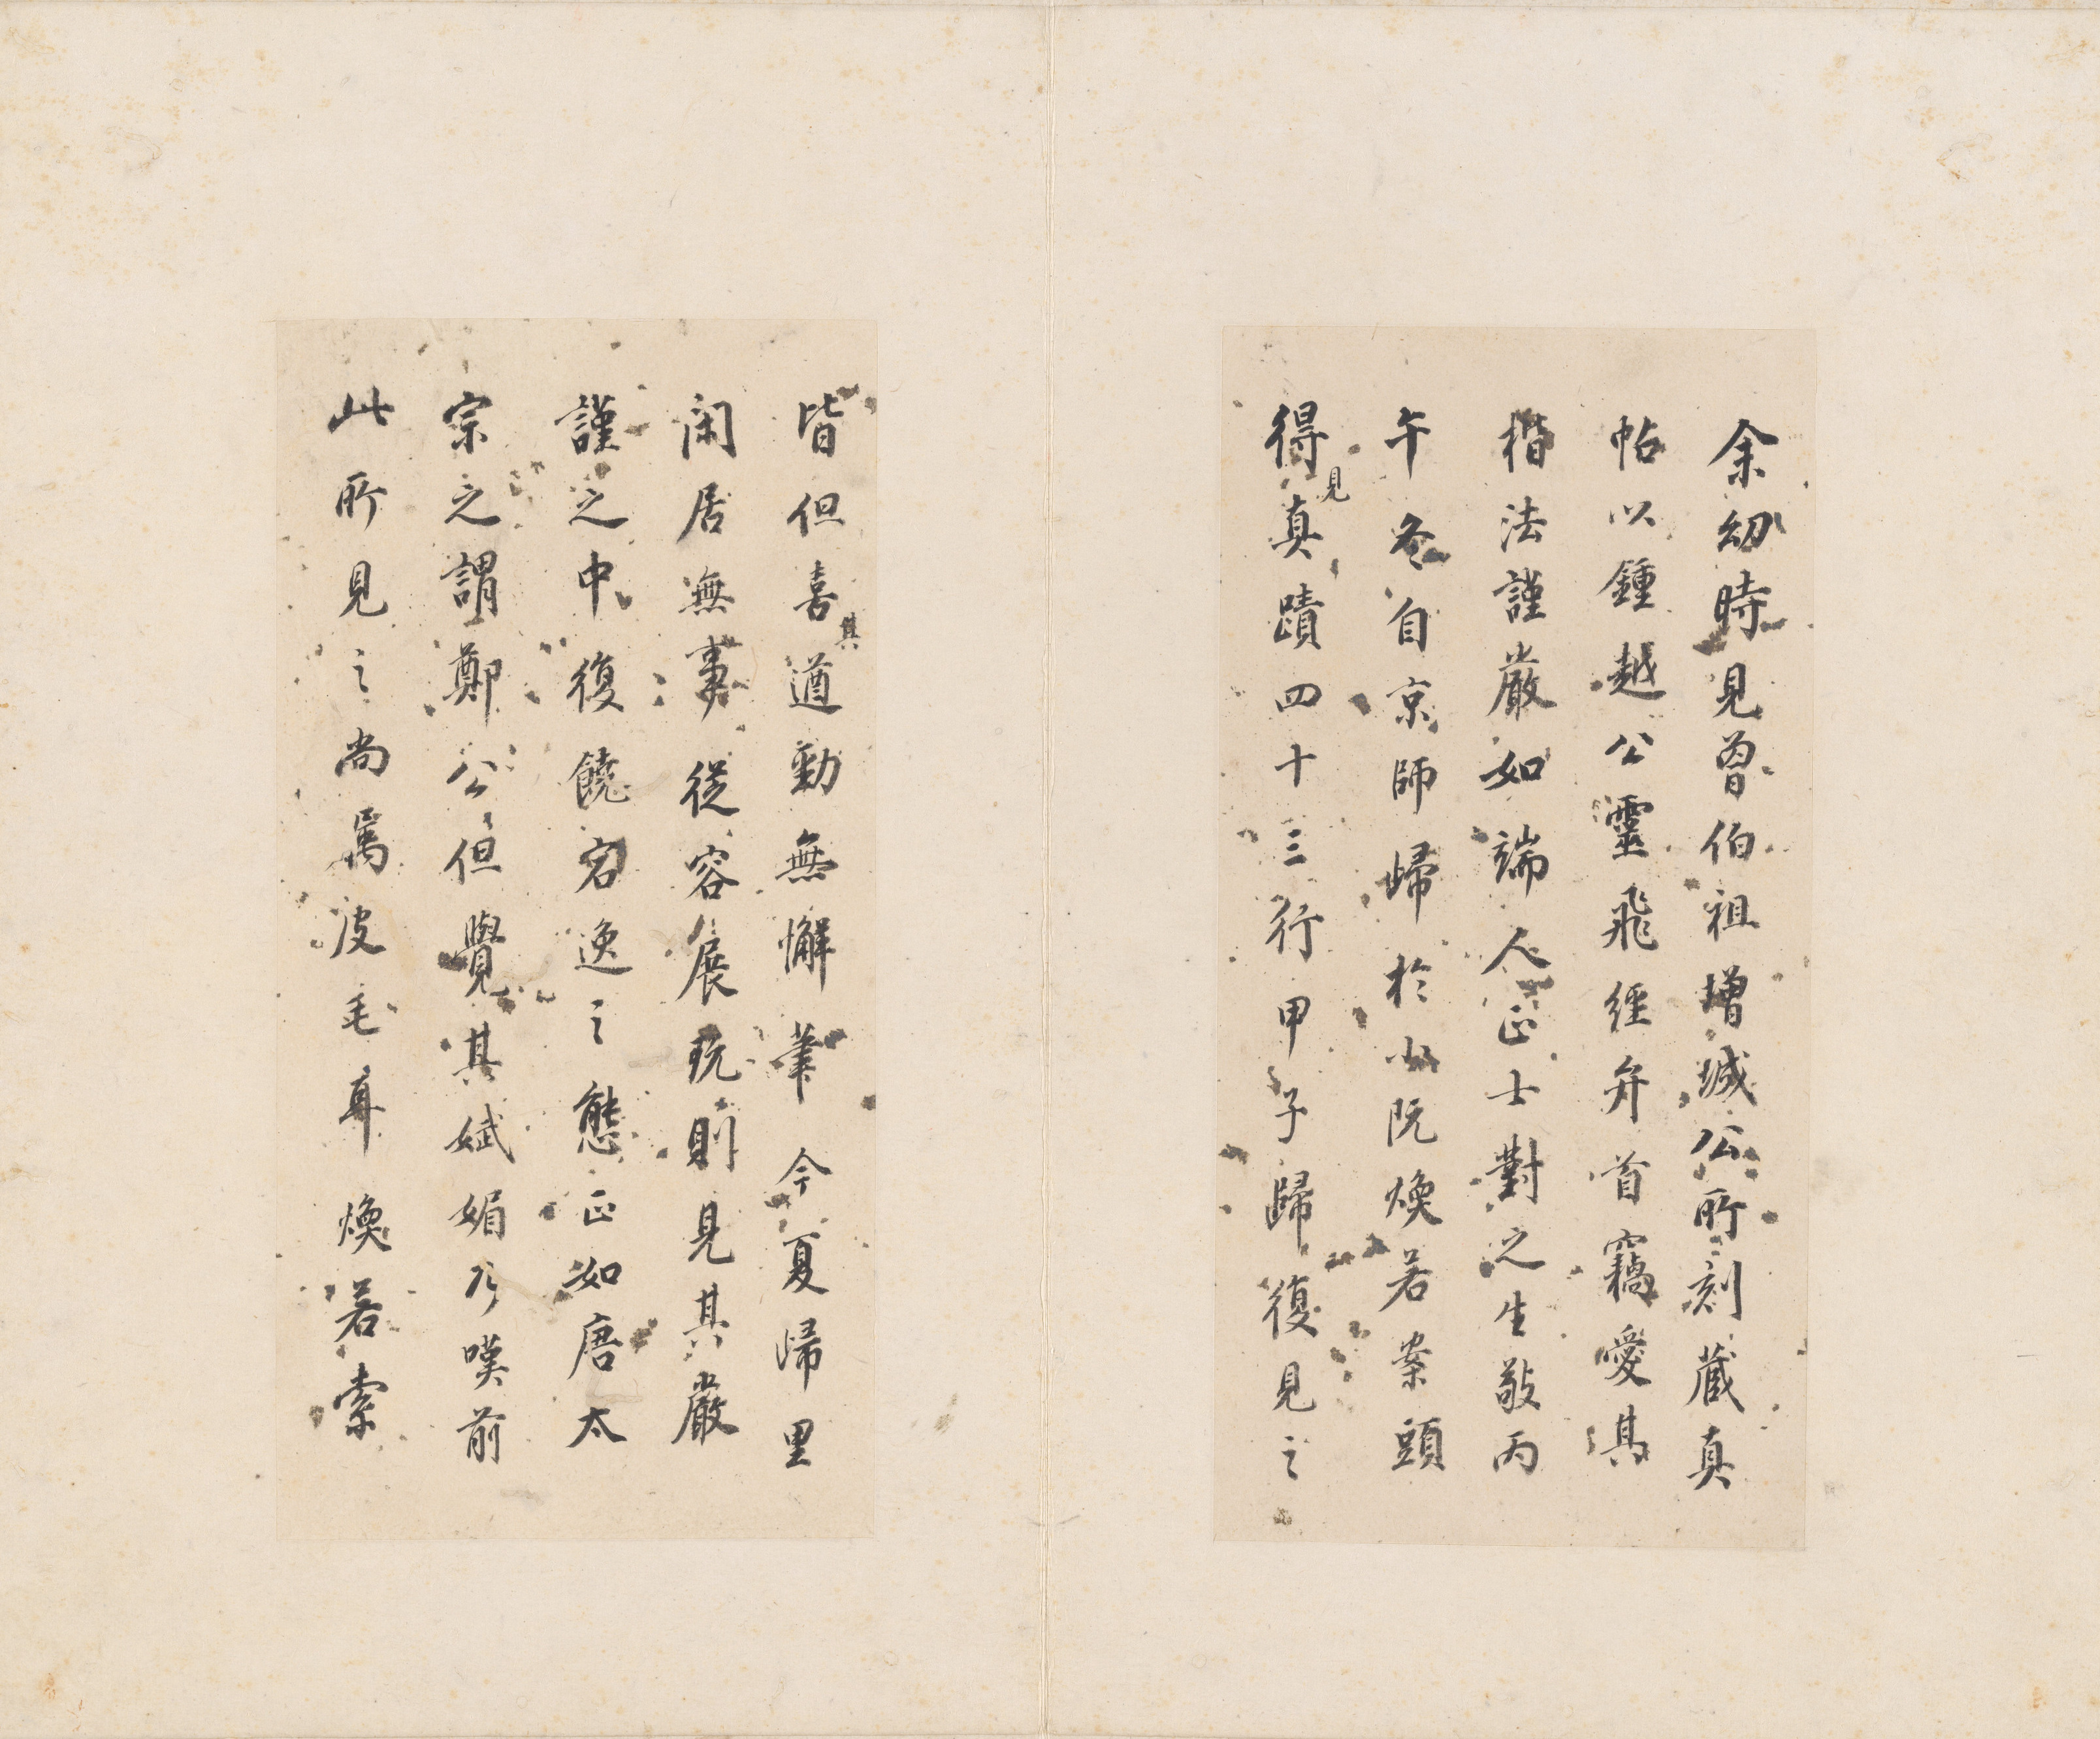 余幼時見曾伯祖增城公所刻藏真
帖以鍾越公靈飛經弁首竊愛其
楷法謹嚴如端人正士對之生敬丙
午冬自京師歸於小阮煥若案頭
得見真蹟四十三行甲子歸復見之
皆但喜其遒勁無懈筆今夏歸里
閑居無事從容展玩則見其嚴
謹之中復饒宕逸之態正如唐太
宗之謂鄭公但覺其娬媚乃嘆前
此所見之尚為皮毛耳煥若索